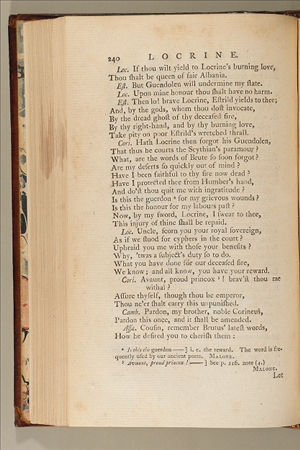 240 LOCRINE.
Loc. If thou wilt yield to Locrine's burning love,
Thou shalt be queen of fair Albania.
Est. But Guendolen will undermine my state.
Loc. Upon mine honour thou shalt have no harm.
Est. Then lo! brave Locrine, Estrild yields to thee;
And, by the gods, whom thou dost invocate,
By the dread ghost of thy deceased sire,
By thy right-hand, and by thy burning love,
Take pity on poor Estrild's wretched thrall.
Cori. Hath Locrine then forgot his Guendolen,
That thus he courts the Scythian's paramour?
What, are the words of Brute so soon forgot?
Are my deserts so quickly out of mind?
Have I been faithful to thy sire now dead?
Have I protected thee from Humber's hand,
And do'st thou quit me with ingratitude?
Is this the guerdon for my grievous wounds?
Is this the honour for my labours past?
Now, by my sword, Locrine, I swear to thee,
This injury of thine shall be repaid.
Loc. Uncle, scorn you your royal sovereign,
As if we stood for cyphers in the court?
Upbraid you me with those your benefits?
Why, 'twas a subject's duty so to do.
What you have done for our deceased sire,
We know; and all know, you have your reward.
Cori. Avaunt, proud princox! brav'st thou me
withal?
Assure thyself, though thou be emperor,
Thou ne'er shalt carry this unpunished.
Camb. Pardon, my brother, noble Corineus,
Pardon this once, and it shall be amended.
Assa. Cousin, remember Brutus' latest words,
How he desired you to cherish them;
Is this the guerdon—] i. e. the reward. The word is fre-
quently used by our ancient poets. MALONE.
Avaunt, proud princox!—] See p. 216. note (4.)
MALONE.
Let